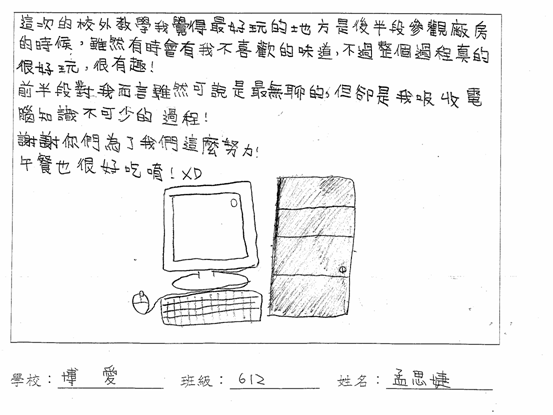 這次的校外教學我覺得最好玩的地方是後半段參觀廠房
的時候，雖然有時會有我不喜歡的味道，不過整個過程真的
很好玩，很有趣！
前半段對我而言雖然可說是最無聊的，但卻是我吸收電
腦知識不可少的過程！
謝謝你們為了我們這麼努力！
午餐也很好吃唷！XD
學校：博愛 班級：612 姓名：孟思婕